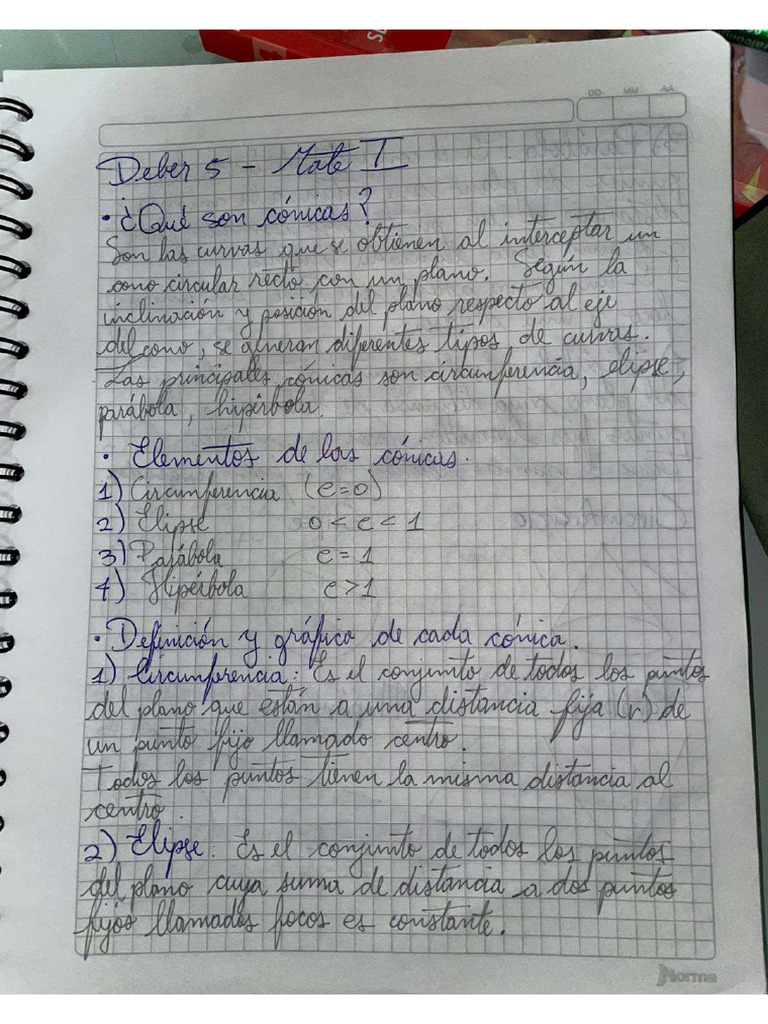 DD MM AA
Deber 5 - Mate I
• ¿Qué son cónicas?
Son las curvas que se obtienen al interceptar un
cono circular recto con un plano. Según la
inclinación y posición del plano respecto al eje
del cono, se generan diferentes tipos de curvas.
Las principales cónicas son circunferencia, elipse,
parábola, hipérbola.
• Elementos de las cónicas.
1) Circunferencia (e=0)
2) Elipse 0 < e < 1
3) Parábola e = 1
4) Hipérbola e > 1
• Definición y gráfico de cada cónica.
1) Circunferencia: Es el conjunto de todos los puntos
del plano que están a una distancia fija (r) de
un punto fijo llamado centro.
Todos los puntos tienen la misma distancia al
centro.
2) Elipse: Es el conjunto de todos los puntos
del plano cuya suma de distancia a dos puntos
fijos llamados focos es constante.
Norma